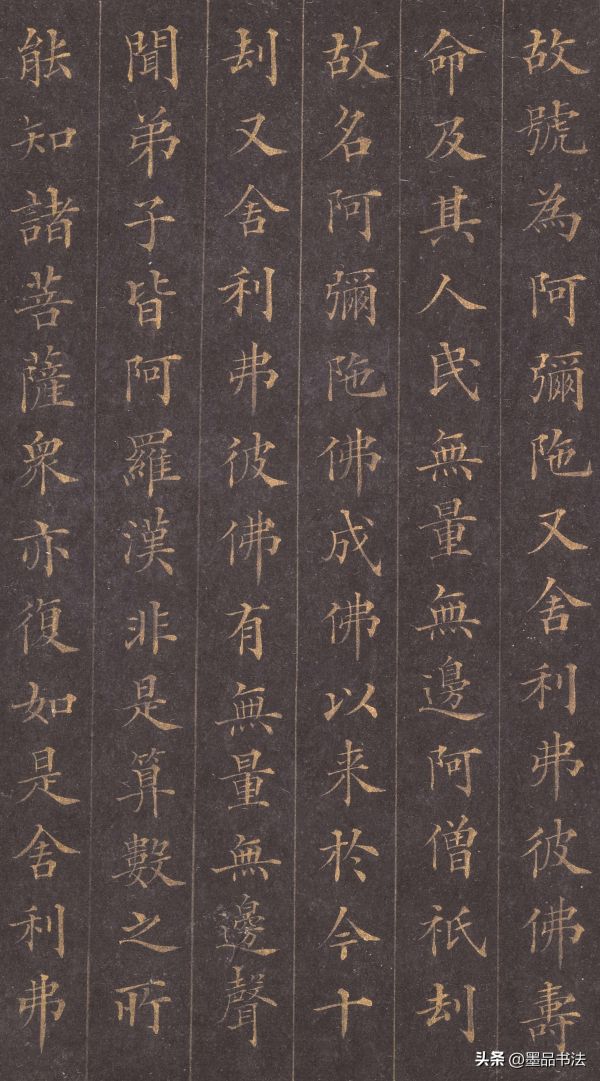 故號為阿彌陁又舍利弗彼佛壽
命及其人民無量無邊阿僧祇刦
故名阿彌陁佛成佛以来於今十
刦又舍利弗彼佛有無量無邊聲
聞弟子皆阿羅漢非是算數之所
能知諸菩薩衆亦復如是舍利弗
头条 @墨品书法